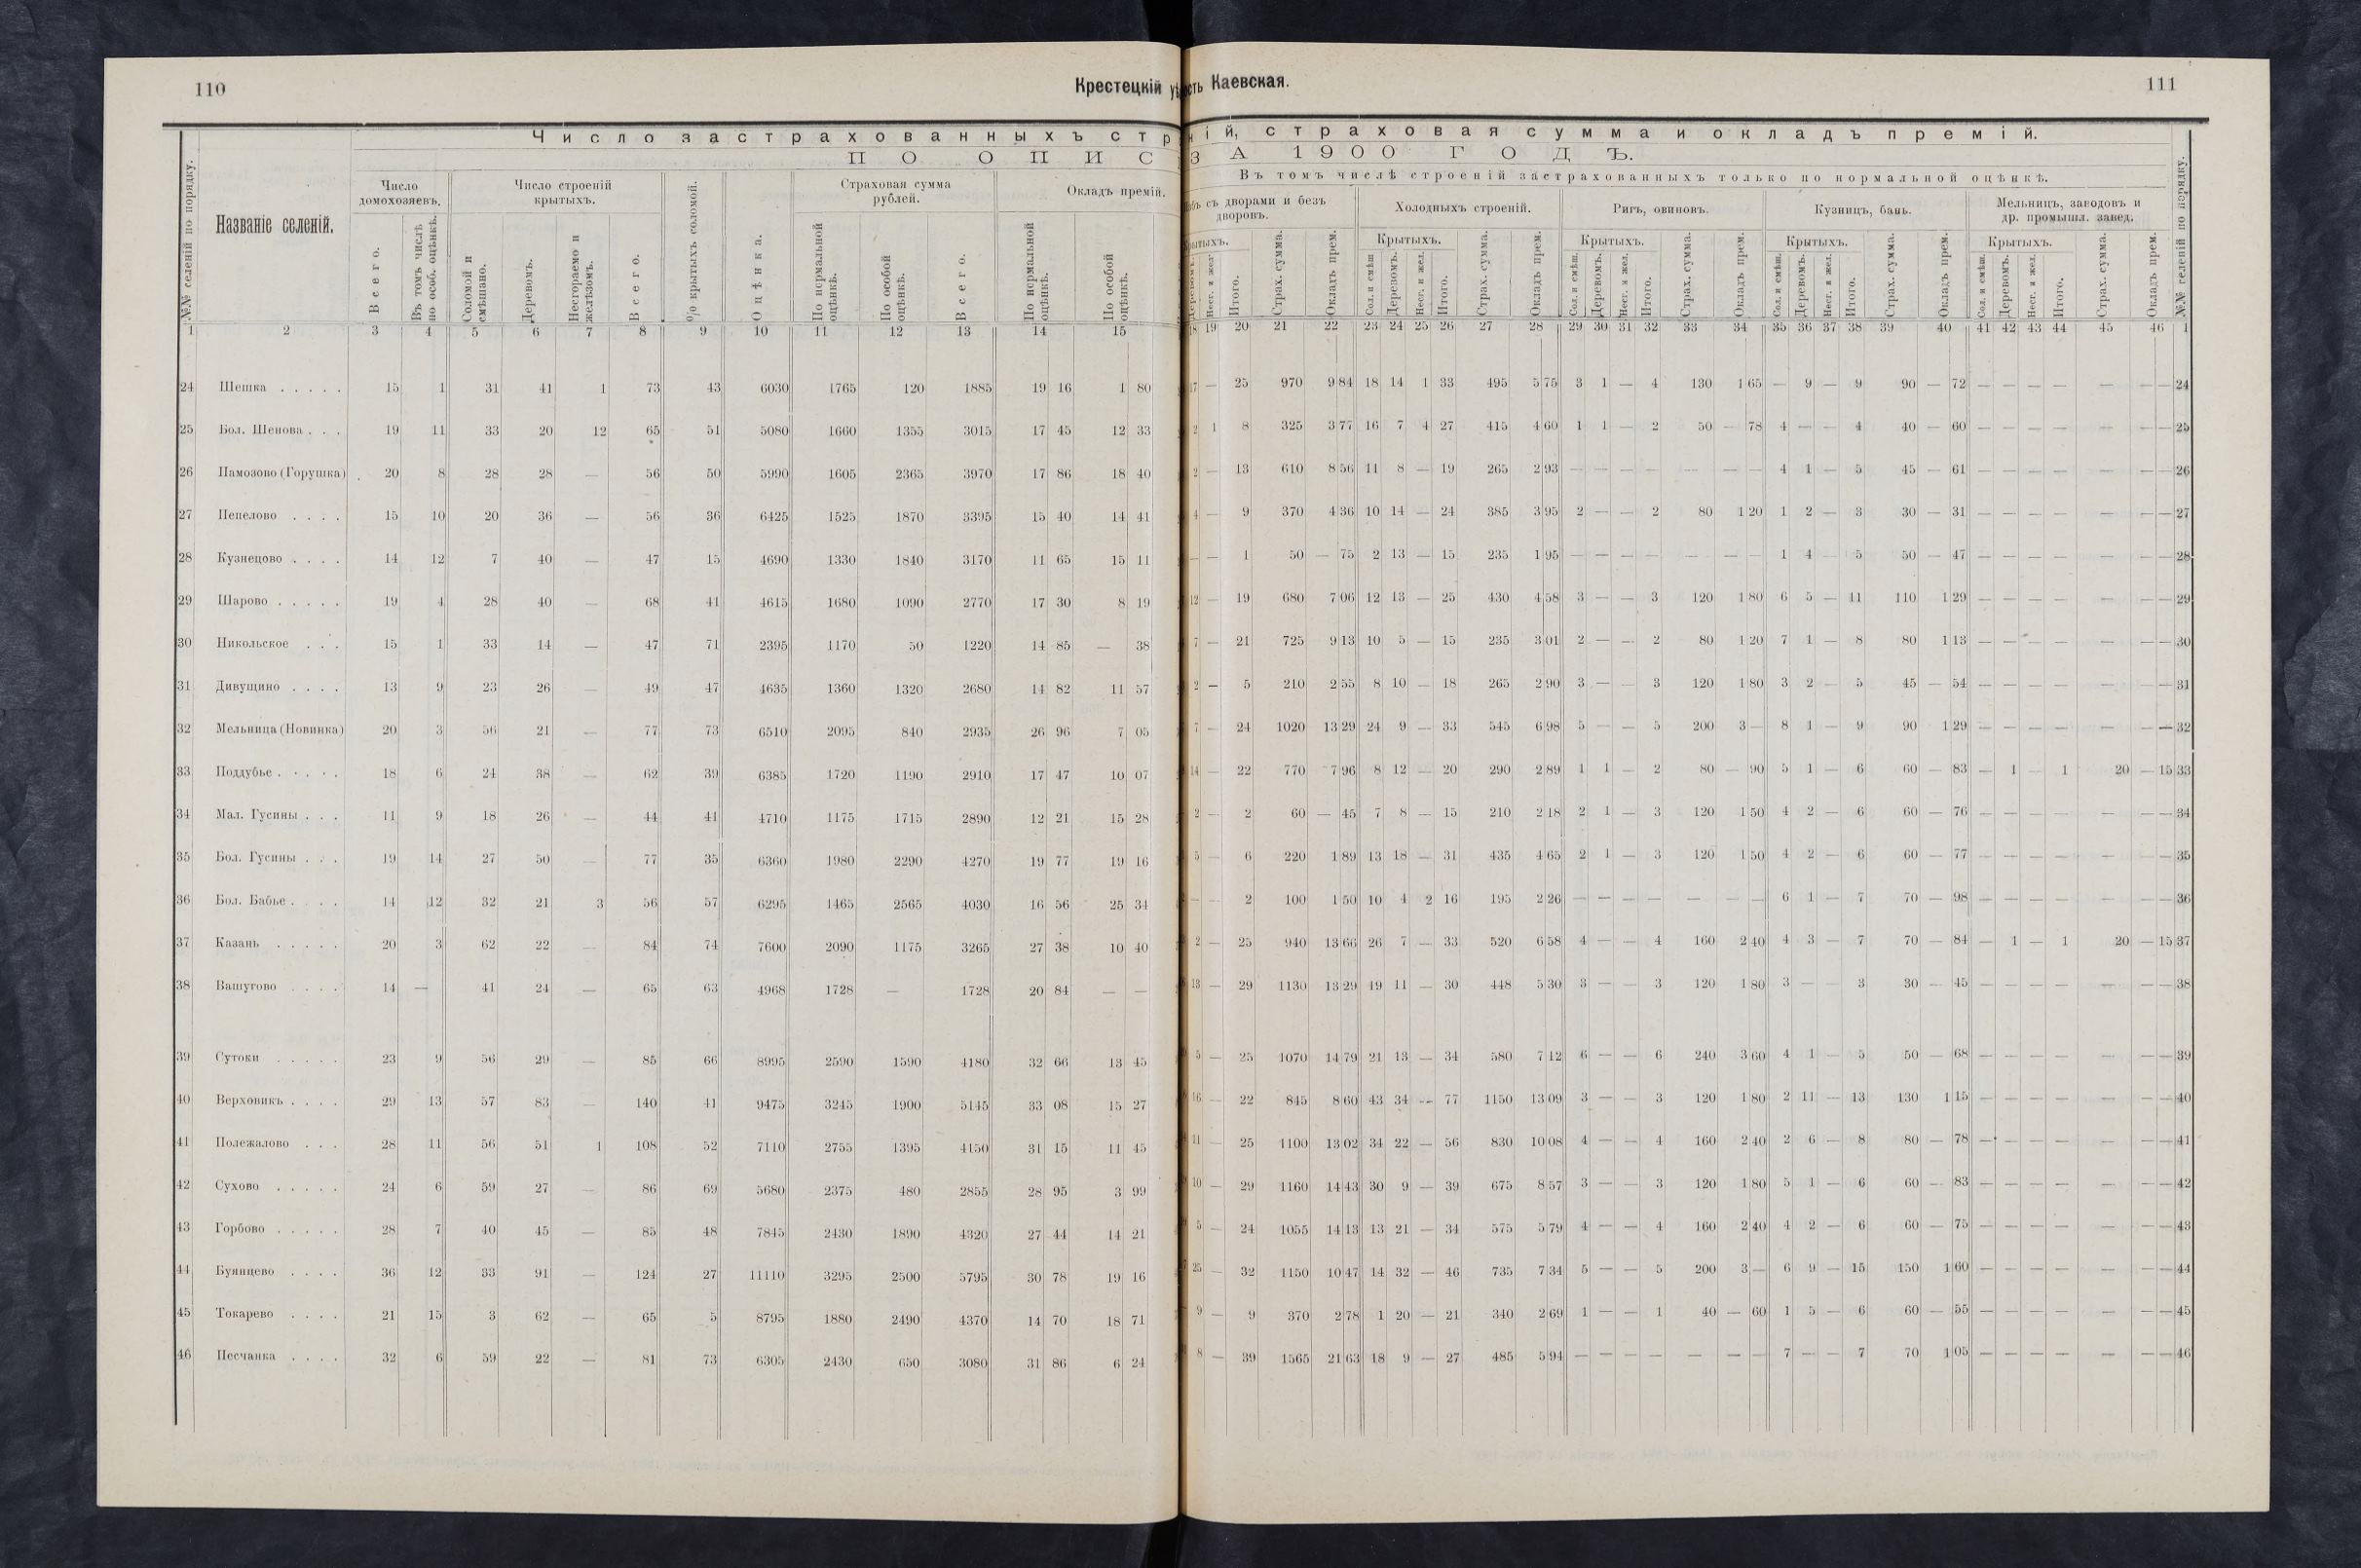 110
Крестецкій
ость Каевская.
111
Число застрахованныхъ стр
ній, страховая сумма и окладъ премій.
ПО ОПИС
ЗА 1900 ГОДЪ.
Въ томъ числѣ строеній застрахованныхъ только по нормальной оцѣнкѣ.
№№ селеній по порядку.
Названіе селеній.
Число домохозяевъ.
Всего.
Въ томъ числѣ по особ. оцѣнкѣ.
Число строеній крытыхъ.
Соломой и смѣшано.
Деревомъ.
Несгораемо и желѣзомъ.
Всего.
% крытыхъ соломой.
Оцѣнка.
Страховая сумма рублей.
По нормальной оцѣнкѣ.
По особой оцѣнкѣ.
Всего.
Окладъ премій.
По нормальной оцѣнкѣ.
По особой оцѣнкѣ.
съ дворами и безъ дворовъ.
Крытыхъ.
Деревомъ. Несг. и жел. Итого. Страх. сумма. Окладъ прем.
Холодныхъ строеній.
Крытыхъ.
Сол. и смѣш. Деревомъ. Несг. и жел. Итого. Страх. сумма. Окладъ прем.
Ригъ, овиновъ.
Крытыхъ.
Сол. и смѣш. Деревомъ. Несг. и жел. Итого. Страх. сумма. Окладъ прем.
Кузницъ, бань.
Крытыхъ.
Сол. и смѣш. Деревомъ. Несг. и жел. Итого. Страх. сумма. Окладъ прем.
Мельницъ, заводовъ и др. промышл. завед.
Крытыхъ.
Сол. и смѣш. Деревомъ. Несг. и жел. Итого. Страх. сумма. Окладъ прем.
№№ селеній по порядку.
1 2 3 4 5 6 7 8 9 10 11 12 13 14 15 18 19 20 21 22 23 24 25 26 27 28 29 30 31 32 33 34 35 36 37 38 39 40 41 42 43 44 45 46 1
24 Шешка . . . . . 15 1 31 41 1 73 43 6030 1765 120 1885 19 16 1 80 17 — 25 970 9 84 18 14 1 33 495 5 75 3 1 — 4 130 1 65 — 9 — 9 90 — 72 — — — — — — — 24
25 Бол. Шепова . . . 19 11 33 20 12 65 51 5080 1660 1355 3015 17 45 12 33 2 1 8 325 3 77 16 7 4 27 415 4 60 1 1 — 2 50 — 78 4 — — 4 40 — 60 — — — — — — — 25
26 Памозово (Горушка) . 20 8 28 28 — 56 50 5990 1605 2365 3970 17 86 18 40 2 — 13 610 8 56 11 8 — 19 265 2 93 — — — — — — — 4 1 — 5 45 — 61 — — — — — — — 26
27 Пепелово . . . . 15 10 20 36 — 56 36 6425 1525 1870 3395 15 40 14 41 4 — 9 370 4 36 10 14 — 24 385 3 95 2 — — 2 80 1 20 1 2 — 3 30 — 31 — — — — — — — 27
28 Кузнецово . . . . 14 12 7 40 — 47 15 4690 1330 1840 3170 11 65 15 11 — — 1 50 — 75 2 13 — 15 235 1 95 — — — — — — — 1 4 — 5 50 — 47 — — — — — — — 28
29 Шарово . . . . . 19 4 28 40 — 68 41 4615 1680 1090 2770 17 30 8 19 12 — 19 680 7 06 12 13 — 25 430 4 58 3 — — 3 120 1 80 6 5 — 11 110 1 29 — — — — — — — 29
30 Никольское . . . 15 1 33 14 — 47 71 2395 1170 50 1220 14 85 — 38 7 — 21 725 9 13 10 5 — 15 235 3 01 2 — — 2 80 1 20 7 1 — 8 80 1 13 — — — — — — — 30
31 Дивущино . . . . 13 9 23 26 — 49 47 4635 1360 1320 2680 14 82 11 57 2 — 5 210 2 55 8 10 — 18 265 2 90 3 — — 3 120 1 80 3 2 — 5 45 — 54 — — — — — — — 31
32 Мельница (Новинка) 20 3 56 21 — 77 73 6510 2095 840 2935 26 96 7 05 7 — 24 1020 13 29 24 9 — 33 545 6 98 5 — — 5 200 3 — 8 1 — 9 90 1 29 — — — — — — — 32
33 Поддубье . . . . . 18 6 24 38 — 62 39 6385 1720 1190 2910 17 47 10 07 14 — 22 770 7 96 8 12 — 20 290 2 89 1 1 — 2 80 — 90 5 1 — 6 60 — 83 — 1 — 1 20 — 15 33
34 Мал. Гусины . . . 11 9 18 26 — 44 41 4710 1175 1715 2890 12 21 15 28 2 — 2 60 — 45 7 8 — 15 210 2 18 2 1 — 3 120 1 50 4 2 — 6 60 — 76 — — — — — — — 34
35 Бол. Гусины . . . 19 14 27 50 — 77 35 6360 1980 2290 4270 19 77 19 16 5 — 6 220 1 89 13 18 — 31 435 4 65 2 1 — 3 120 1 50 4 2 — 6 60 — 77 — — — — — — — 35
36 Бол. Бабье . . . . 14 12 32 21 3 56 57 6295 1465 2565 4030 16 56 25 34 — — 2 100 1 50 10 4 2 16 195 2 26 — — — — — — — 6 1 — 7 70 — 98 — — — — — — — 36
37 Казань . . . . . 20 3 62 22 — 84 74 7600 2090 1175 3265 27 38 10 40 2 — 25 940 13 66 26 7 — 33 520 6 58 4 — — 4 160 2 40 4 3 — 7 70 — 84 — 1 — 1 20 — 15 37
38 Вашугово . . . . 14 — 41 24 — 65 63 4968 1728 — 1728 20 84 — — 13 — 29 1130 13 29 19 11 — 30 448 5 30 3 — — 3 120 1 80 3 — — 3 30 — 45 — — — — — — — 38
39 Сутоки . . . . . 23 9 56 29 — 85 66 8995 2590 1590 4180 32 66 13 45 5 — 25 1070 14 79 21 13 — 34 580 7 12 6 — — 6 240 3 60 4 1 — 5 50 — 68 — — — — — — — 39
40 Верховикъ . . . . 29 13 57 83 — 140 41 9475 3245 1900 5145 33 08 15 27 16 — 22 845 8 60 43 34 — 77 1150 13 09 3 — — 3 120 1 80 2 11 — 13 130 1 15 — — — — — — — 40
41 Полежалово . . . 28 11 56 51 1 108 52 7110 2755 1395 4150 31 15 11 45 11 — 25 1100 13 02 34 22 — 56 830 10 08 4 — — 4 160 2 40 2 6 — 8 80 — 78 — — — — — — — 41
42 Сухово . . . . . 24 6 59 27 — 86 69 5680 2375 480 2855 28 95 3 99 10 — 29 1160 14 43 30 9 — 39 675 8 57 3 — — 3 120 1 80 5 1 — 6 60 — 83 — — — — — — — 42
43 Горбово . . . . . 28 7 40 45 — 85 48 7845 2430 1890 4320 27 44 14 21 5 — 24 1055 14 13 13 21 — 34 575 5 79 4 — — 4 160 2 40 4 2 — 6 60 — 75 — — — — — — — 43
44 Буянцево . . . . 36 12 33 91 — 124 27 11110 3295 2500 5795 30 78 19 16 25 — 32 1150 10 47 14 32 — 46 735 7 34 5 — — 5 200 3 — 6 9 — 15 150 1 60 — — — — — — — 44
45 Токарево . . . . 21 15 3 62 — 65 5 8795 1880 2490 4370 14 70 18 71 9 — 9 370 2 78 1 20 — 21 340 2 69 1 — — 1 40 — 60 1 5 — 6 60 — 55 — — — — — — — 45
46 Песчанка . . . . 32 6 59 22 — 81 73 6305 2430 650 3080 31 86 6 24 8 — 39 1565 21 63 18 9 — 27 485 5 94 — — — — — — — 7 — — 7 70 1 05 — — — — — — — 46